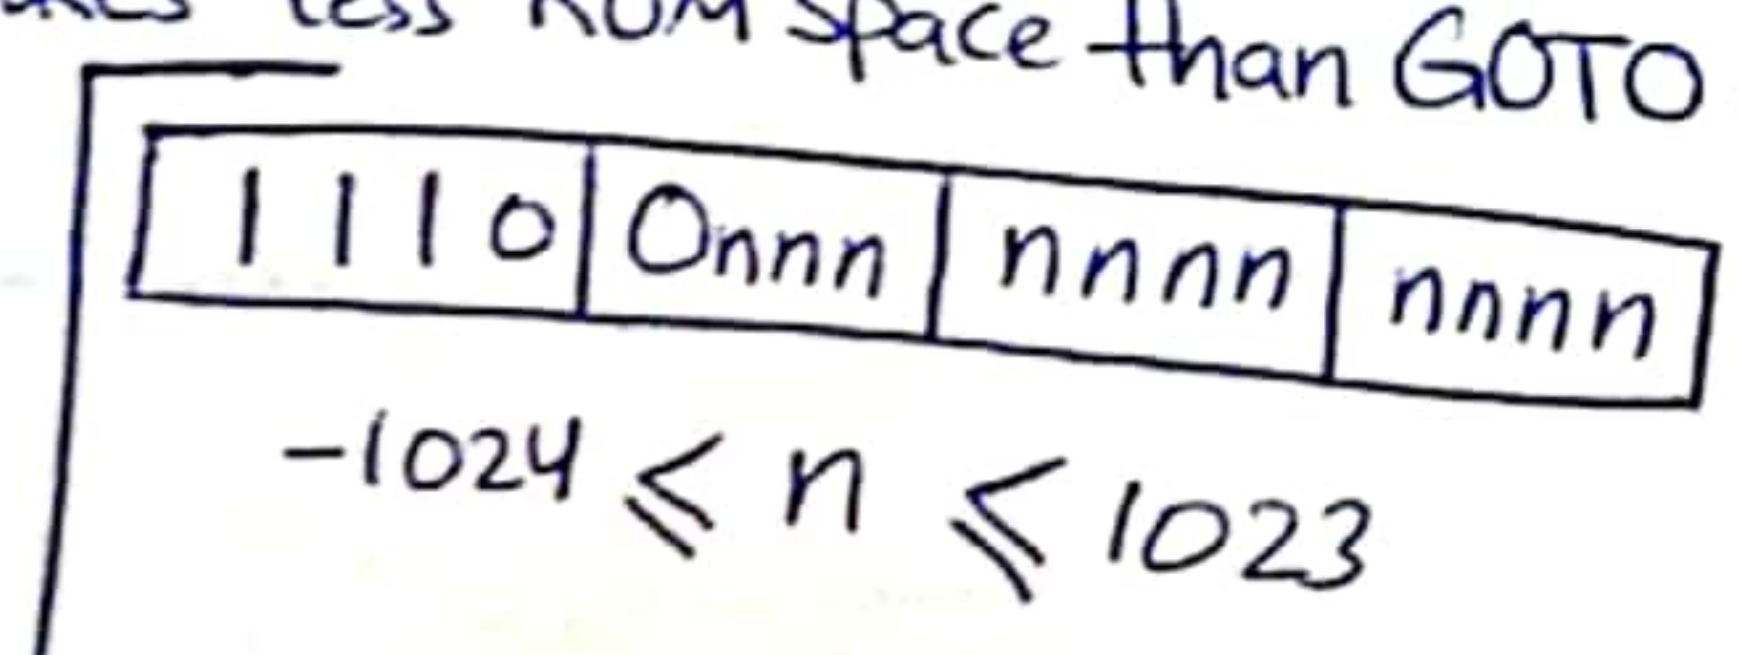 less ROM space than GOTO
1110 0nnn nnnn nnnn
-1024 ≤ n ≤ 1023